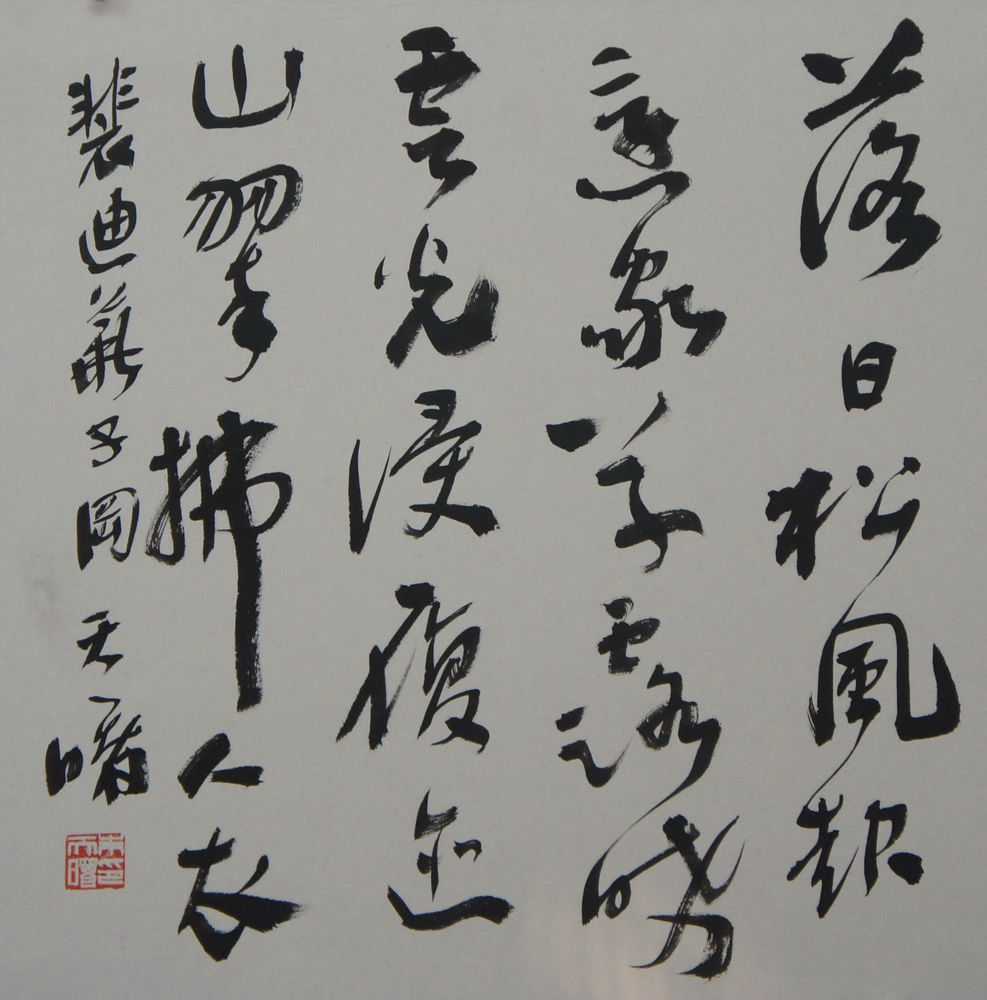 落日松風起
還家草露晞
雲光侵履迹
山翠拂人衣
裴迪華子岡 天曙
朱印天曙